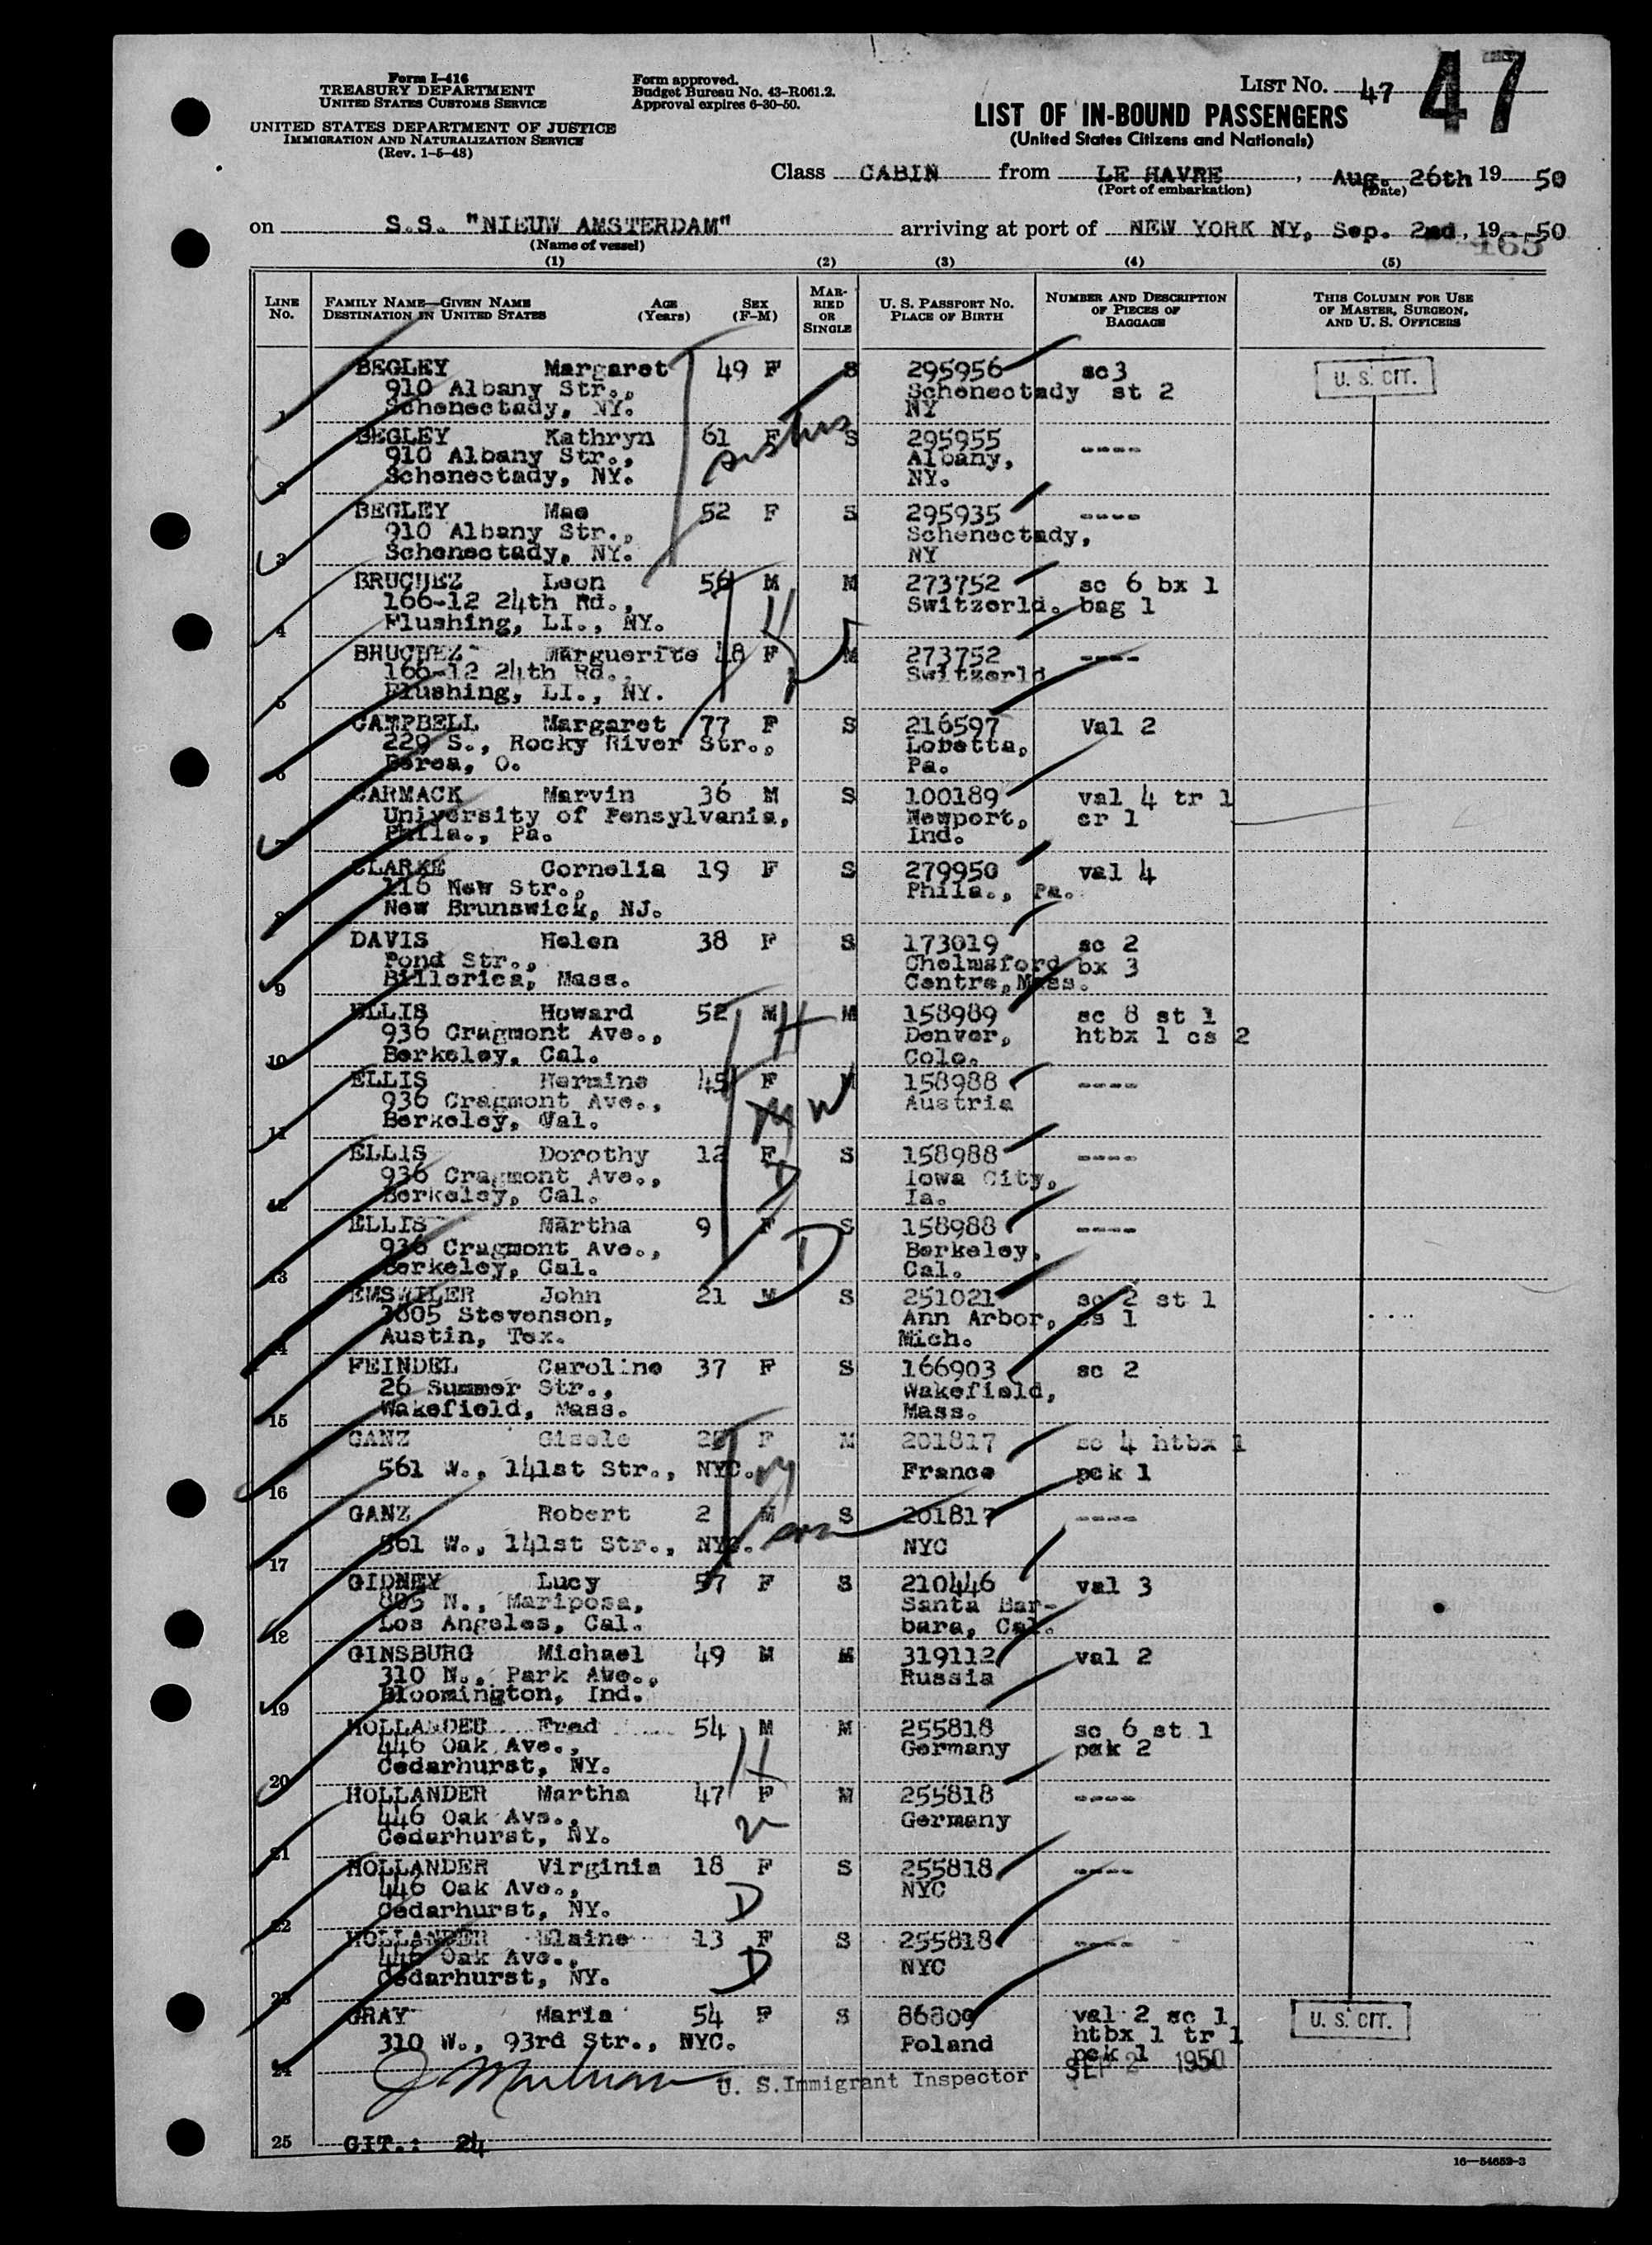 Form I-416
TREASURY DEPARTMENT
UNITED STATES CUSTOMS SERVICE
UNITED STATES DEPARTMENT OF JUSTICE
IMMIGRATION AND NATURALIZATION SERVICE
(Rev. 1-5-48)
Form approved.
Budget Bureau No. 43-R061.2.
Approval expires 6-30-50.
LIST No. 47 47
LIST OF IN-BOUND PASSENGERS
(United States Citizens and Nationals)
Class CABIN from LE HAVRE, Aug. 26th 19 50
(Port of embarkation) (Date)
on S.S. "NIEUW AMSTERDAM" arriving at port of NEW YORK NY, Sep. 2nd, 19 50
(Name of vessel) 165
(1) (2) (3) (4) (5)
LINE No. FAMILY NAME—GIVEN NAME DESTINATION IN UNITED STATES AGE (Years) SEX (F-M) MARRIED OR SINGLE U. S. PASSPORT No. PLACE OF BIRTH NUMBER AND DESCRIPTION OF PIECES OF BAGGAGE THIS COLUMN FOR USE OF MASTER, SURGEON, AND U. S. OFFICERS
BEGLEY Margaret 49 F S 295956 sc3 U. S. CIT.
910 Albany Str., Schenectady st 2
1 Schenectady, NY. NY
BEGLEY Kathryn 61 F sisters S 295955 ----
910 Albany Str., Albany,
2 Schenectady, NY. NY.
BEGLEY Mae 52 F S 295935 ----
910 Albany Str., Schenectady,
3 Schenectady, NY. NY
BRUCHEZ Leon 56 M H M 273752 sc 6 bx 1
166-12 24th Rd., Switzerld. bag 1
4 Flushing, LI., NY.
BRUCHEZ Marguerite 48 F M 273752 ----
166-12 24th Rd., Switzerld
5 Flushing, LI., NY.
CAMPBELL Margaret 77 F S 216597 val 2
229 S., Rocky River Str., Lobetta,
6 Berea, O. Pa.
CARMACK Marvin 36 M S 100189 val 4 tr 1
University of Pensylvania, Newport, cr 1
7 Phila., Pa. Ind.
CLARKE Cornelia 19 F S 279950 val 4
116 New Str., Phila., Pa.
8 New Brunswick, NJ.
DAVIS Helen 38 F S 173019 sc 2
Pond Str., Chelmsford bx 3
9 Billerica, Mass. Centre, Mass.
ELLIS Howard 52 M H M 158989 sc 8 st 1
936 Cragmont Ave., Denver, htbx 1 cs 2
10 Berkeley, Cal. Colo.
ELLIS Hermine 45 F W M 158988 ----
936 Cragmont Ave., Austria
11 Berkeley, Cal.
ELLIS Dorothy 12 F D S 158988 ----
936 Cragmont Ave., Iowa City,
12 Berkeley, Cal. Ia.
ELLIS Martha 9 F D S 158988 ----
936 Cragmont Ave., Berkeley,
13 Berkeley, Cal. Cal.
EMSWILER John 21 M S 251021 sc 2 st 1
3805 Stevenson, Ann Arbor, cs 1
14 Austin, Tex. Mich.
FEINDEL Caroline 37 F S 166903 sc 2
26 Summer Str., Wakefield,
15 Wakefield, Mass. Mass.
GANZ Gisele F M 201817 sc 4 htbx 1
561 W., 141st Str., NYC. France pck 1
16
GANZ Robert 2 M son S 201817 ----
561 W., 141st Str., NYC. NYC
17
GIDNEY Lucy 57 F S 210446 val 3
805 N., Mariposa, Santa Bar-
18 Los Angeles, Cal. bara, Cal.
GINSBURG Michael 49 M M 319112 val 2
310 N., Park Ave., Russia
19 Bloomington, Ind.
HOLLANDER Fred 54 M H M 255818 sc 6 st 1
446 Oak Ave., Germany pck 2
20 Cedarhurst, NY.
HOLLANDER Martha 47 F W M 255818 ----
446 Oak Ave., Germany
21 Cedarhurst, NY.
HOLLANDER Virginia 18 F D S 255818 ----
446 Oak Ave., NYC
22 Cedarhurst, NY.
HOLLANDER Elaine 13 F D S 255818 ----
446 Oak Ave., NYC
23 Cedarhurst, NY.
GRAY Maria 54 F S 86809 val 2 sc 1 U. S. CIT.
310 W., 93rd Str., NYC. Poland htbx 1 tr 1
24 pck 1
U. S. Immigrant Inspector SEP 2 1950
25 CIT.: 24
16—54652-3